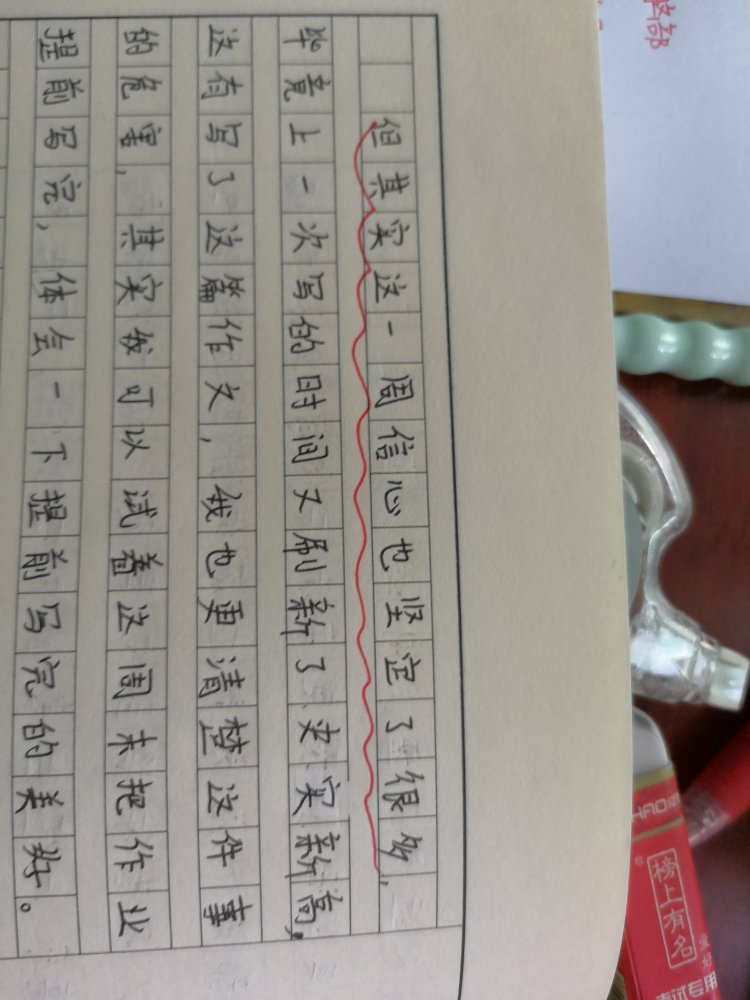 但其实这一周信心也坚定了很多,
毕竟上一次写的时间又刷新了史实新高,
这有写了这篇作文,我也更清楚这件事
的危害,其实我可以试着这周末把作业
提前写完,体会一下提前写完的美好。
榜上有名
考试专用